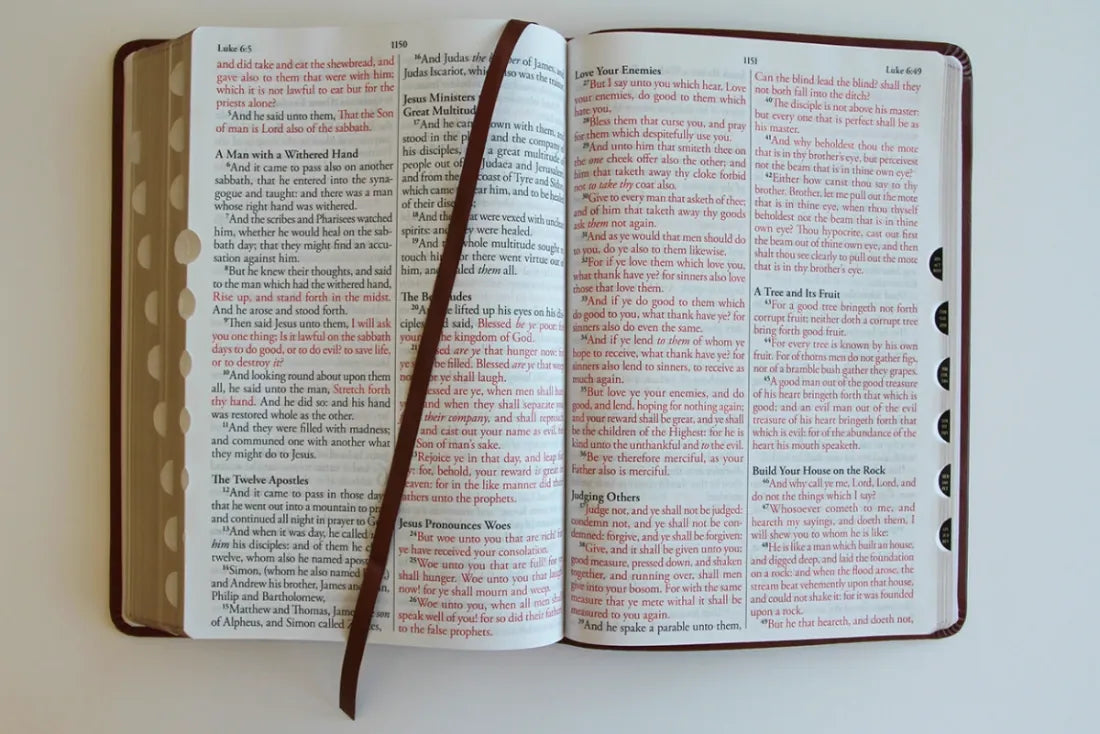 Luke 6:5
1150
and did take and eat the shewbread, and
gave also to them that were with him;
which it is not lawful to eat but for the
priests alone?
5And he said unto them, That the Son
of man is Lord also of the sabbath.
A Man with a Withered Hand
6And it came to pass also on another
sabbath, that he entered into the syna-
gogue and taught: and there was a man
whose right hand was withered.
7And the scribes and Pharisees watched
him, whether he would heal on the sab-
bath day; that they might find an accu-
sation against him.
8But he knew their thoughts, and said
to the man which had the withered hand,
Rise up, and stand forth in the midst.
And he arose and stood forth.
9Then said Jesus unto them, I will ask
you one thing; Is it lawful on the sabbath
days to do good, or to do evil? to save life,
or to destroy it?
10And looking round about upon them
all, he said unto the man, Stretch forth
thy hand. And he did so: and his hand
was restored whole as the other.
11And they were filled with madness;
and communed one with another what
they might do to Jesus.
The Twelve Apostles
12And it came to pass in those days
that he went out into a mountain to
and continued all night in prayer to
13And when it was day, he called
him his disciples: and of them he
twelve, whom also he named
14Simon, (whom he also named
and Andrew his brother, James and
Philip and Bartholomew,
15Matthew and Thomas, James son
of Alpheus, and Simon called
16And Judas the of James, and
Judas Iscariot, also was the
Jesus Ministers
Great
17And he down with them, and
stood in the and the company
his disciples, a great multitude
people out of Judaea and Jerusalem,
and from the coast of Tyre and
which came him, and to be healed
of their
18And were vexed with unclean
spirits: and were healed.
19And whole multitude sought
touch him: for there went virtue out
him, and them all.
The
20And he lifted up his eyes on his dis-
ciples, said, Blessed be ye poor: for
kingdom of God.
are ye that hunger now: for
be filled. Blessed are ye that weep
for ye shall laugh.
are ye, when men shall
and when they shall separate
their company, and shall reproach
and cast out your name as evil,
Son of man's sake.
Rejoice ye in that day, and leap for
for, behold, your reward is great in
for in the like manner did their
unto the prophets.
Jesus Pronounces Woes
24But woe unto you that are rich! for
ye have received your consolation.
25Woe unto you that are full! for ye
shall hunger. Woe unto you that laugh
now! for ye shall mourn and weep.
26Woe unto you, when all men shall
speak well of you! for so did their fathers
to the false prophets.
1151
Luke 6:49
Love Your Enemies
27But I say unto you which hear, Love
your enemies, do good to them which
hate you,
28Bless them that curse you, and pray
for them which despitefully use you.
29And unto him that smiteth thee on
the one cheek offer also the other; and
him that taketh away thy cloke forbid
not to take thy coat also.
30Give to every man that asketh of thee;
and of him that taketh away thy goods
ask them not again.
31And as ye would that men should do
to you, do ye also to them likewise.
32For if ye love them which love you,
what thank have ye? for sinners also love
those that love them.
33And if ye do good to them which
do good to you, what thank have ye? for
sinners also do even the same.
34And if ye lend to them of whom ye
hope to receive, what thank have ye? for
sinners also lend to sinners, to receive as
much again.
35But love ye your enemies, and do
good, and lend, hoping for nothing again;
and your reward shall be great, and ye shall
be the children of the Highest: for he is
kind unto the unthankful and to the evil.
36Be ye therefore merciful, as your
Father also is merciful.
Judging Others
37Judge not, and ye shall not be judged:
condemn not, and ye shall not be con-
demned: forgive, and ye shall be forgiven:
38Give, and it shall be given unto you;
good measure, pressed down, and shaken
together, and running over, shall men
give into your bosom. For with the same
measure that ye mete withal it shall be
measured to you again.
39And he spake a parable unto them,
Can the blind lead the blind? shall they
not both fall into the ditch?
40The disciple is not above his master:
but every one that is perfect shall be as
his master.
41And why beholdest thou the mote
that is in thy brother's eye, but perceivest
not the beam that is in thine own eye?
42Either how canst thou say to thy
brother, Brother, let me pull out the mote
that is in thine eye, when thou thyself
beholdest not the beam that is in thine
own eye? Thou hypocrite, cast out first
the beam out of thine own eye, and then
shalt thou see clearly to pull out the mote
that is in thy brother's eye.
A Tree and Its Fruit
43For a good tree bringeth not forth
corrupt fruit; neither doth a corrupt tree
bring forth good fruit.
44For every tree is known by his own
fruit. For of thorns men do not gather figs,
nor of a bramble bush gather they grapes.
45A good man out of the good treasure
of his heart bringeth forth that which is
good; and an evil man out of the evil
treasure of his heart bringeth forth that
which is evil: for of the abundance of the
heart his mouth speaketh.
Build Your House on the Rock
46And why call ye me, Lord, Lord, and
do not the things which I say?
47Whosoever cometh to me, and
heareth my sayings, and doeth them, I
will shew you to whom he is like:
48He is like a man which built an house,
and digged deep, and laid the foundation
on a rock: and when the flood arose, the
stream beat vehemently upon that house,
and could not shake it: for it was founded
upon a rock.
49But he that heareth, and doeth not,